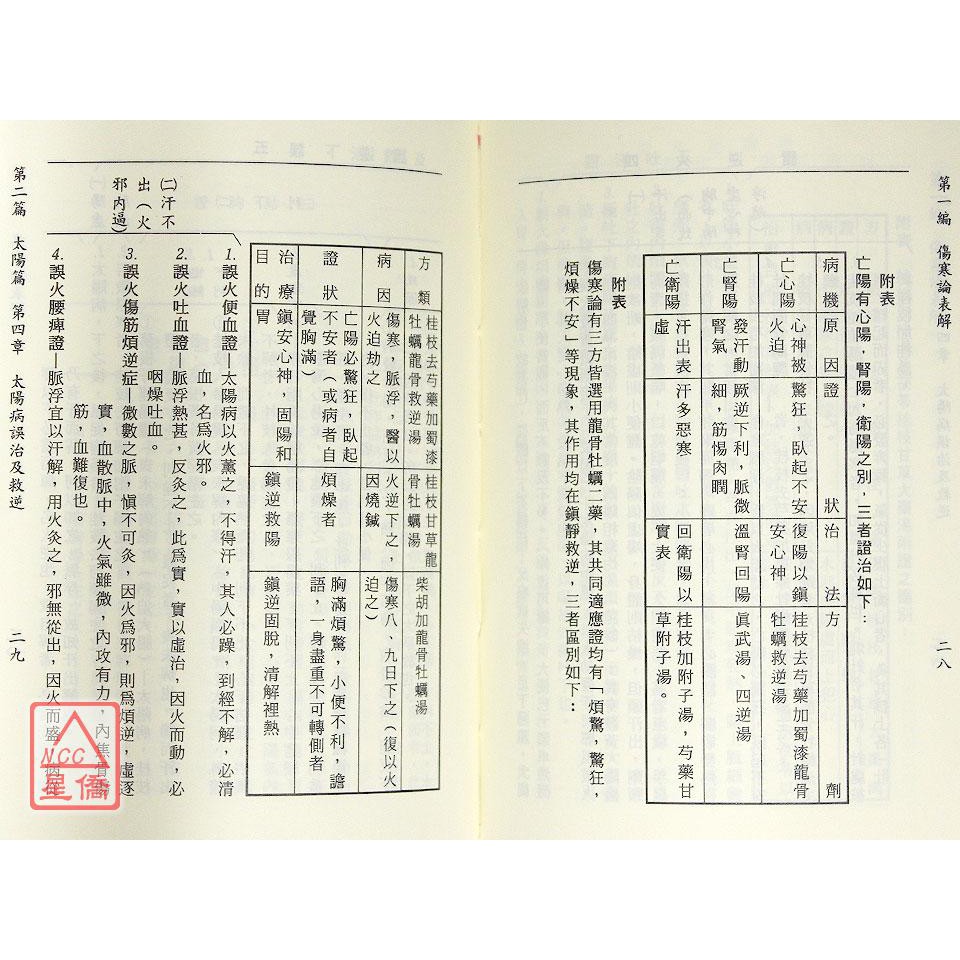 第一編　傷寒論表解
二八
附表
亡陽有心陽，腎陽，衛陽之別，三者證治如下：
病機
原因
證狀
治法
方劑
亡心陽
心神被
火迫
驚狂，臥起不安
復陽以鎮
安心神
桂枝去芍藥加蜀漆龍骨
牡蠣救逆湯
亡腎陽
發汗動
腎氣
厥逆下利，脈微
細，筋惕肉瞤
溫腎回陽
眞武湯、四逆湯
亡衛陽
汗出表
虛
汗多惡寒
回衛陽以
實表
桂枝加附子湯，芍藥甘
草附子湯。
附表
傷寒論有三方皆選用龍骨牡蠣二藥，其共同適應證均有「煩驚，驚狂，
煩燥不安」等現象，其作用均在鎮靜救逆，三者區別如下：
方類
桂枝去芍藥加蜀漆
牡蠣龍骨救逆湯
桂枝甘草龍
骨牡蠣湯
柴胡加龍骨牡蠣湯
病因
傷寒，脈浮，醫以
火迫劫之
火逆下之，
因燒鍼
傷寒八、九日下之（復以火
迫之）
證狀
亡陽必驚狂，臥起
不安者（或病者自
覺胸滿）
煩燥者
胸滿煩驚，小便不利，譫
語，一身盡重不可轉側者
治療
目的
鎮安心神，固陽和
胃
鎮逆救陽
鎮逆固脫，清解裡熱
㈡汗不
出（火
邪內逼）
1.誤火便血證—太陽病以火薰之，不得汗，其人必躁，到經不解，必清
血，名爲火邪。
2.誤火吐血證—脈浮熱甚，反灸之，此爲實，實以虛治，因火而動，必
咽燥吐血。
3.誤火傷筋煩逆症—微數之脈，愼不可灸，因火爲邪，則爲煩逆，虛逐
實，血散脈中，火氣雖微，內攻有力，內焦
筋，血難復也。
4.誤火腰痺證—脈浮宜以汗解，用火灸之，邪無從出，因火而盛
第二篇　太陽篇　第四章　太陽病誤治及救逆
二九
NCC
星僑